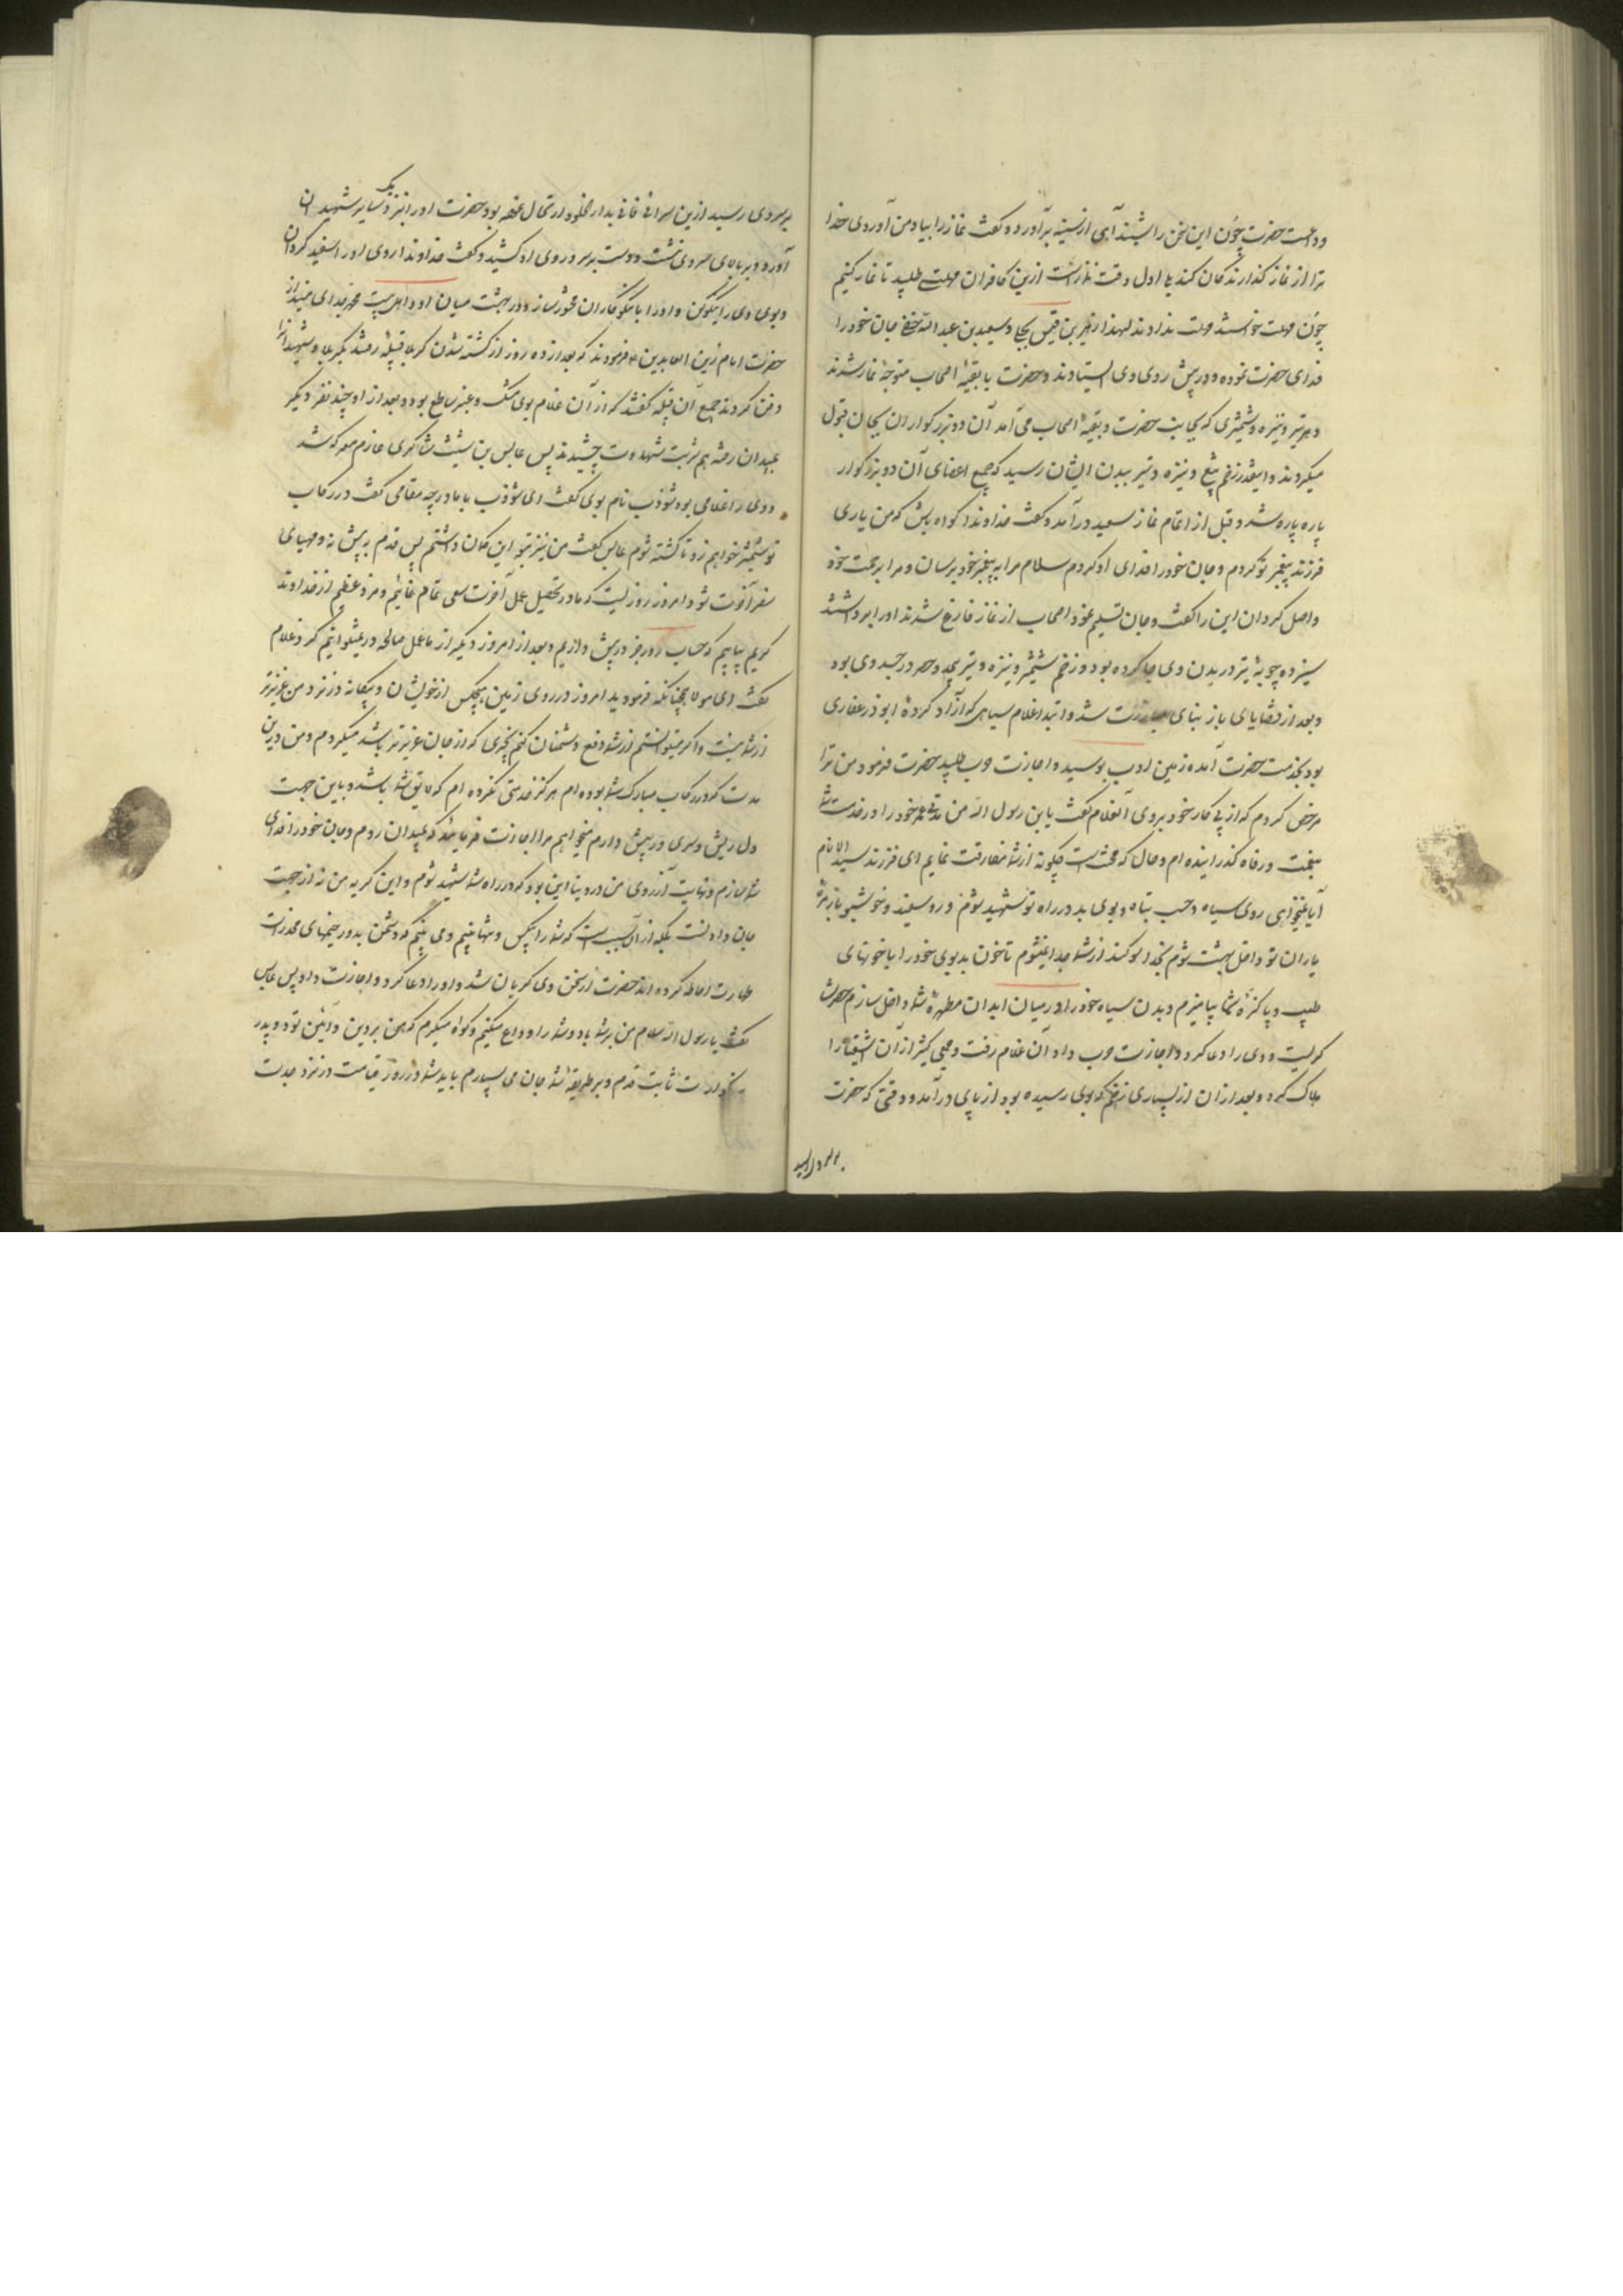 وداعست حضرت چون این سخن را شنید آهی از سینه برآورد و گفت نماز را بیاد من آوردی خدا
ترا از نماز گذارندگان کند بلی اول وقت نماز است ازین کافران مهلت طلبید تا نماز کنیم
چون مهلت خواستند مهلت ندادند لهذا زهیر بن قیس بجلی و سعید بن عبد الله حنفی جان خود را
فدای حضرت نموده و در پیش روی وی ایستادند و حضرت با بقیهٔ اصحاب متوجه نماز شدند
و هر تیر و نیزه و شمشیری که بجانب حضرت و بقیهٔ اصحاب می‌آمد آن دو بزرگواران بجان قبول
میکردند و اینقدر زخم تیغ و نیزه و تیر ببدن ایشان رسید که جمیع اعضای آن دو بزرگوار
پاره پاره شد و قبل از اتمام نماز سعید درآمد و گفت خداوندا گواه باش که من یاری
فرزند پیغمبر تو کردم و جان خود را فدای او کردم سلام مرا به پیغمبر خود برسان و مرا برحمت خود
واصل گردان این را گفت و جان تسلیم نمود اصحاب از نماز فارغ شدند او را برداشتند
سیزده چوبهٔ تیر در بدن وی جا کرده بود و زخم شمشیر و نیزه و تیر بیحد و حصر در جسد وی بود
و بعد از قضایای باز بنای مبارزت شد و ابتدا غلام سیاهی که آزاد کردهٔ ابوذر غفاری
بود بخدمت حضرت آمده زمین ادب بوسید و اجازت حرب طلبید حضرت فرمود من ترا
مرخص کردم که از پی کار خود بروی آن غلام گفت یا بن رسول الله من مدتی عمر خود را در خدمت شما
بنعمت و رفاه گذرانیده‌ام و حال که محنت است چگونه از شما مفارقت نمایم ای فرزند سید الانام
آیا نمیخواهی روی سیاه و حسب تباه و بوی بد در راه تو شهید شوم و رو سفید و خوشبو با زمرهٔ
یاران تو داخل بهشت شوم بخدا سوگند از شما جدا نمیشوم تا خون بدبوی خود را با خونهای
طیب و پاکیزهٔ شما بیامیزم و بدن سیاه خود را در میان ابدان مطهرهٔ شما داخل سازم حضرت
گریست و وی را دعا کرد و اجازت حرب داد آن غلام رفت و جمعی کثیر از آن اشقیا را
هلاک کرد و بعد از آن از بسیاری زخم که بوی رسیده بود از پای درآمد و وقتی که حضرت
بر سر وی رسید
بر سر وی رسید ازین سرای فانی بدار الخلود ارتحال نموده بود حضرت او را نیز نزدیک سایر شهیدان
آورد و بر بالای سر وی نشست و دست بر سر و روی او کشید و گفت خداوندا روی او را سفید گردان
و بوی وی را نیکو کن و او را با نیکوکاران محشور ساز و در بهشت میان او و اهل بیت محمد جدای مینداز
حضرت امام زین العابدین ع فرمودند که بعد از ده روز از کشته شدن کربلا قبیله رفتند بکربلا و شهیدانرا
دفن کردند جمیع آن قبیله گفتند که از آن غلام بوی مشک و عنبر ساطع بود و بعد از او چند نفر دیگر
بمیدان رفته هم شربت شهادت چشیدند پس عابس بن شبیث شاکری عازم معرکه شد
و وی را غلامی بود شوذب نام بوی گفت ای شوذب با ما در چه مقامی گفت در رکاب
تو شمشیر خواهم زد تا کشته شوم عابس گفت من نیز بتو این گمان داشتم پس قدم به پیش نه و مهیای
سفر آخرت شو و امروز روزیست که ما در تحصیل عمل آخرت سعی تمام نمائیم و مزد عظیم از خداوند
کریم بیابیم که حساب روز جزا در پیش داریم و بعد از امروز دیگر از ما عمل صالحه در نمیتوانیم کرد غلام
گفت ای مولا چنانکه فرمودید امروز در روی زمین هیچکس از خویشان و بیگانه در نزد من عزیزتر
از شما نیست و اگر میتوانستم از شما دفع دشمنان کنم بچیزی که از جان عزیزتر باشد میکردم و من درین
مدت که در رکاب مبارک شما بوده‌ام هرگز خدمتی نکرده‌ام که لایق شما باشد و باین جهت
دل ریش و سری در پیش دارم میخواهم مرا اجازت فرمائید که بمیدان روم و جان خود را فدای
شما سازم و نهایت آرزوی من در دنیا این بود که در راه شما شهید شوم و این گریه من نه از جهت
جان دادنست بلکه از آن سبب است که شما را بیکس و تنها بینم و می بینم که دشمن بدور خیمهای مخدرات
طهارت احاطه کرده‌اند حضرت از سخن وی گریان شد و او را دعا کرد و اجازت داد پس عابس
گفت یا بن رسول الله سلام من بر شما باد و شما را وداع میکنم و گواه میگیرم که من بر دین و آئین تو و پدر
بزرگوارت ثابت قدم و بر طریقهٔ شما جان می سپارم باید شما در روز قیامت در نزد جدت